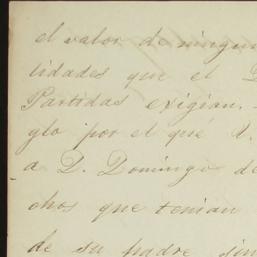 el valor de ningun
lidades que el
Partidas exigian.
glo por el que
a D. Domingo de
chos que tenian
de su padre sin